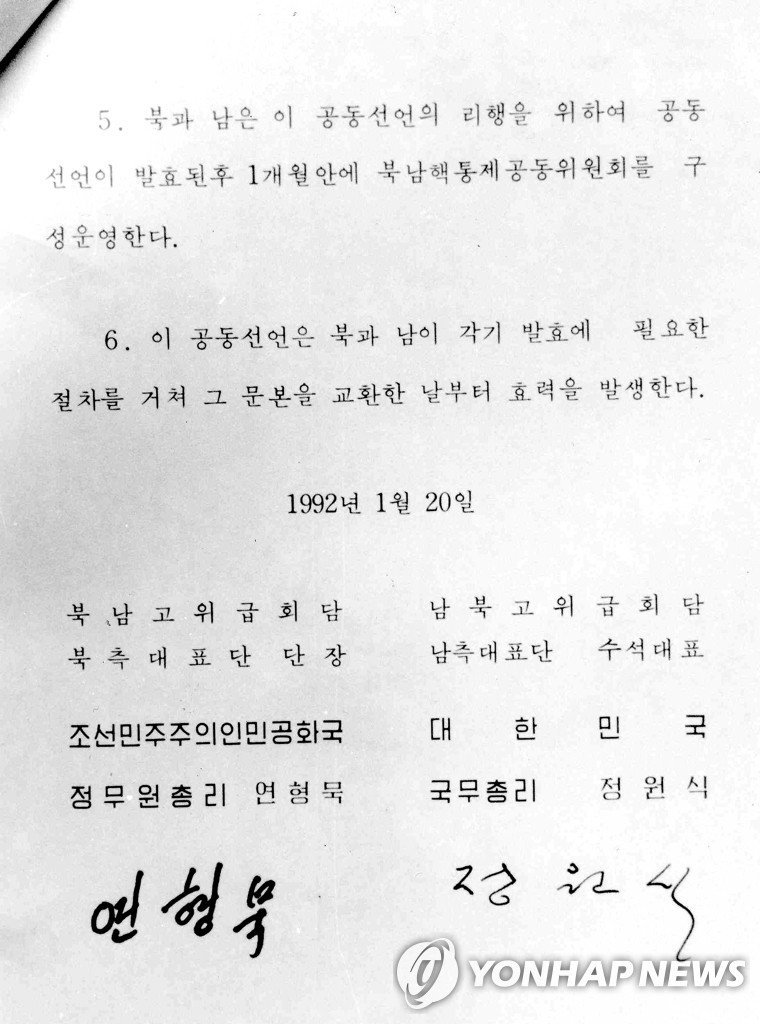 5. 북과 남은 이 공동선언의 리행을 위하여 공동
선언이 발효된후 1개월안에 북남핵통제공동위원회를 구
성운영한다.
6. 이 공동선언은 북과 남이 각기 발효에 필요한
절차를 거쳐 그 문본을 교환한 날부터 효력을 발생한다.
1992년 1월 20일
북남고위급회담
북측대표단 단장
조선민주주의인민공화국
정무원총리 연형묵
연형묵
남북고위급회담
남측대표단 수석대표
대한민국
국무총리 정원식
정원식
YONHAP NEWS